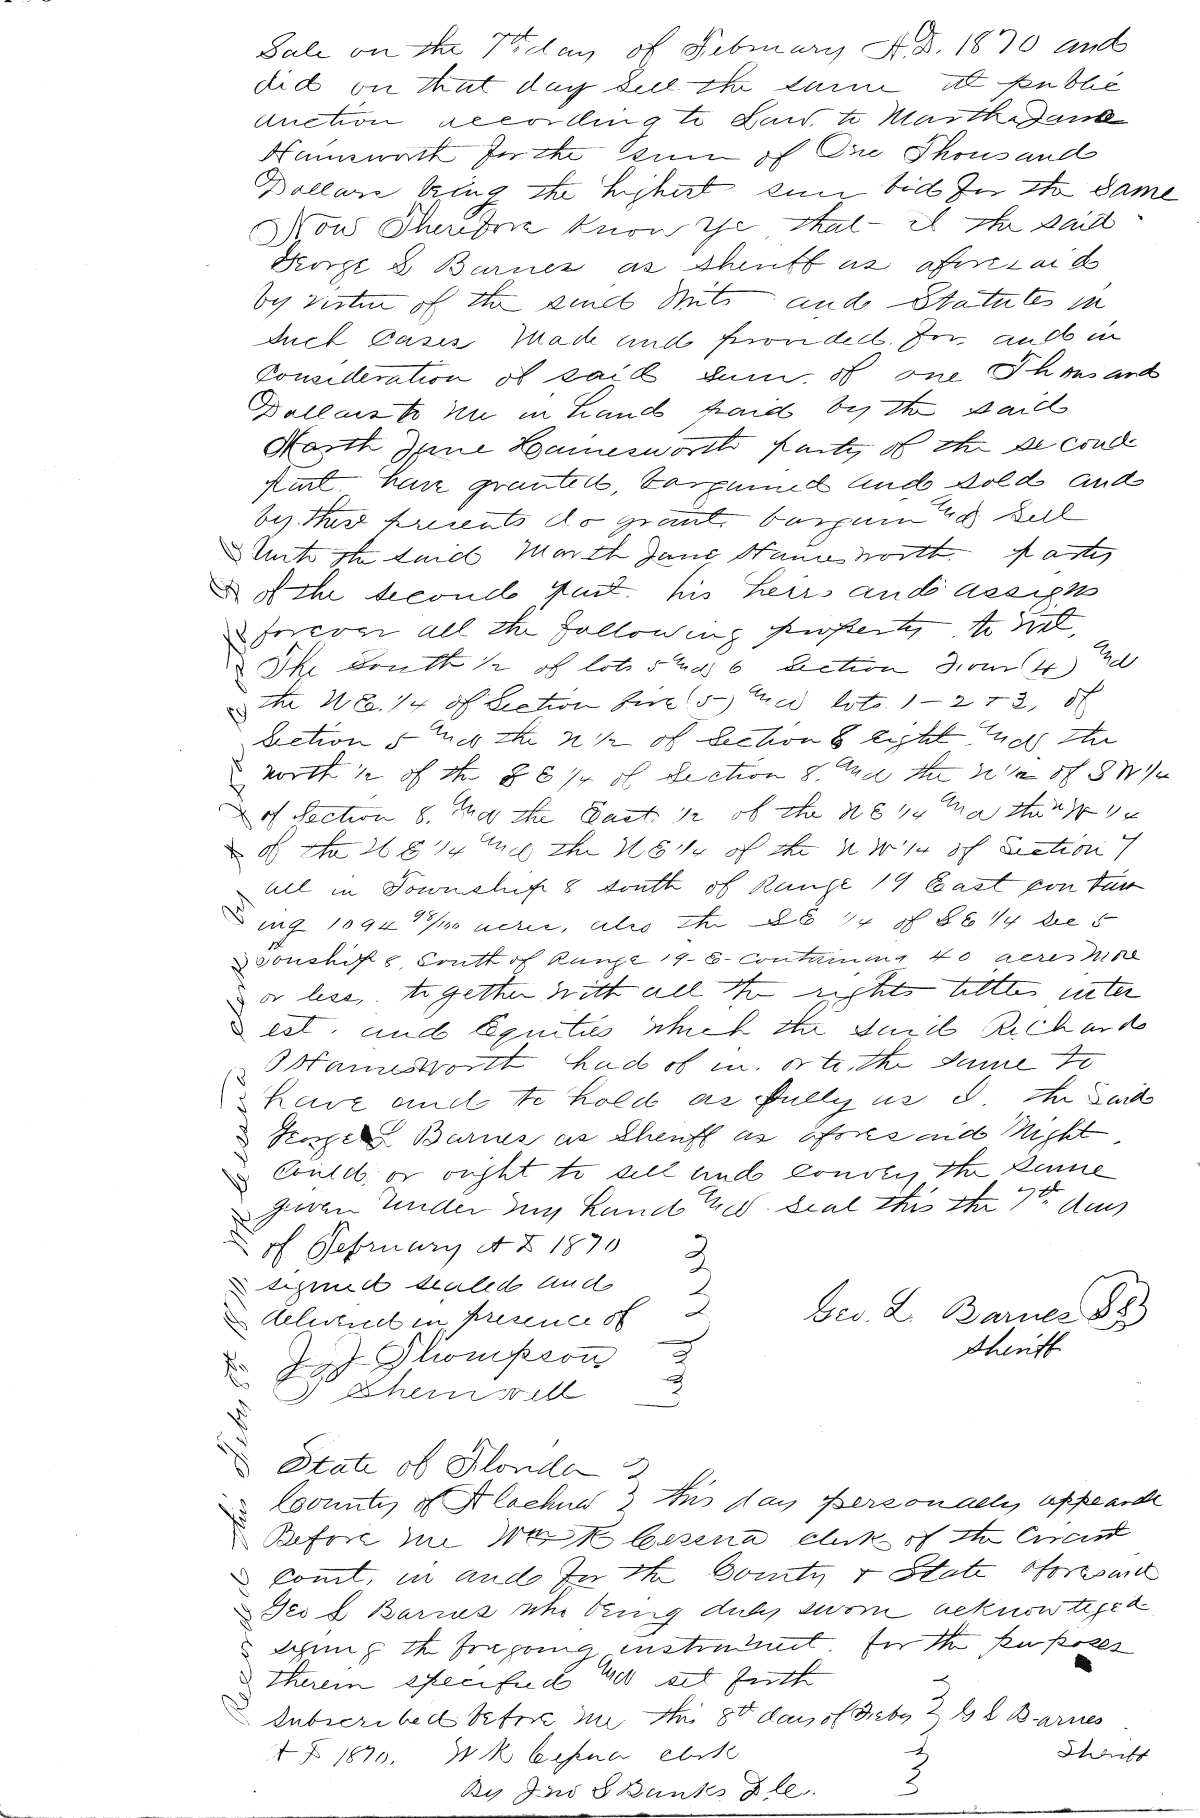 Sale on the 7th day of February A.D. 1870 and
did on that day Sell the same at public
auction according to Law. to Martha Jane
Hainsworth for the sum of One Thousand
Dollars being the highest sum bid for the Same
Now Therefore Know Ye that I the said
George L Barnes as Sheriff as aforesaid
by virtue of the said Writs and Statutes in
such Cases Made and provided. for. and in
Consideration of said Sum. of one Thousand
Dollars to me in hand paid by the said
Marth Jane Hainesworth party of the second
part. have granted, bargained and sold and
by these presents do grant, bargain and Sell
Unto the said Marth Jane Hainesworth. party
of the second part. his heirs and assigns
forever all the following property to wit,
The South 1/2 of lots 5 and 6 Section Four (4) and
the N E. 1/4 of Section five (5) and lots. 1 - 2 + 3, of
Section 5 and the N 1/2 of Section 8 eight and the
north 1/2 of the S E 1/4 of Section 8. and the N 1/2 of S W 1/4
of Section 8. and the East 1/2 of the N E 1/4 and the N W 1/4
of the N E 1/4 and the N E 1/4 of the N W 1/4 of Section 7
all in Township 8 south of Range 19 East contain
ing 1094 98/100 acres, also the S E 1/4 of S E 1/4 Sec 5
Tonship 8. South of Range 19 - E - containing 40 acres more
or less. together with all the rights titles inter
est. and Equities which the said Richard
Hainesworth had of in. or to. the same to
have and to hold as fully as I. the Said
George L Barnes as Sheriff as aforesaid Might
Could. or ought to sell and convey the same
given under my hand and seal this the 7th day
of February A D 1870
signed sealed and
delivered in presence of
Geo. L. Barnes SS
Sheriff
J J Thompson
Shemwell
State of Florida
County of Alachua this day personally appeard
Before me Wm K Cessna clerk of the Circuit
Court, in and for the County + State aforesaid
Geo L Barnes who being duly sworn acknowleged
signing the foregoing instrument. for the purposes
therein specified and set forth
Subscribed before me this 8th day of Feby G L Barnes
A D 1870. W K Cessna clerk Sheriff
By Jno S Banks D.C.
Recorded this Feby 8th 1870 W K Cessna Clerk by